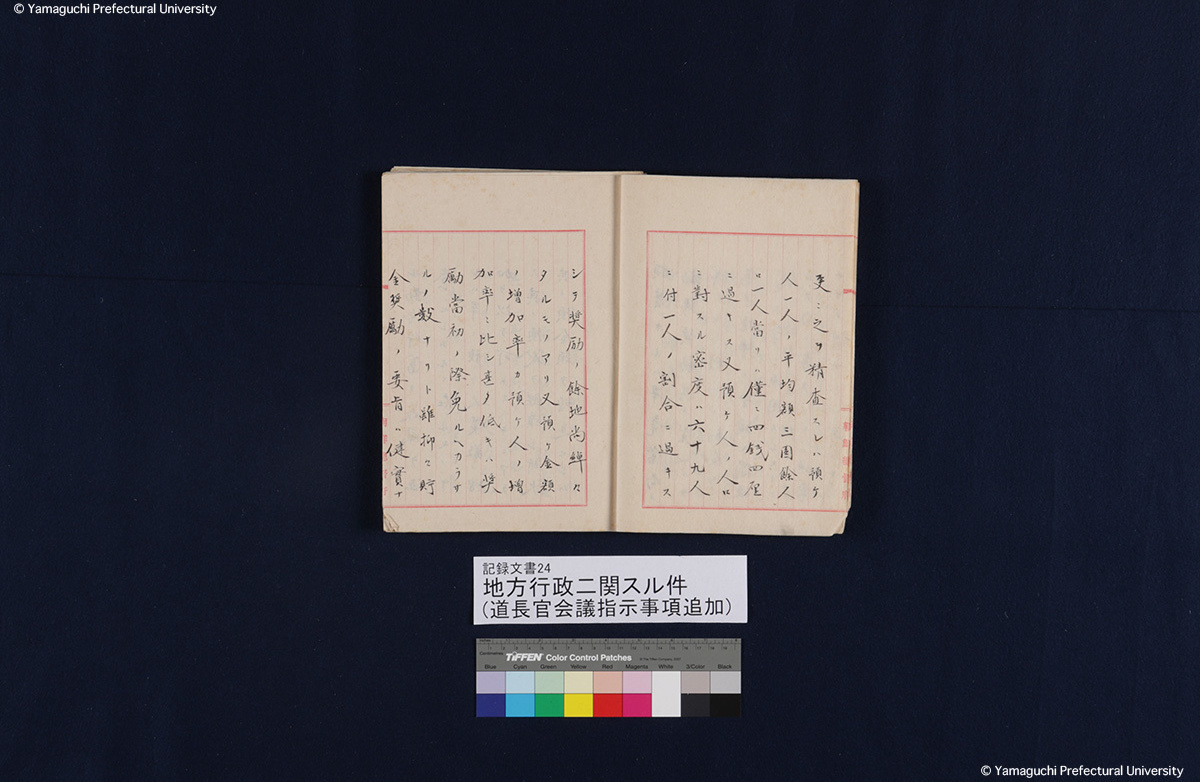 © Yamaguchi Prefectural University
更ニ之ヲ精査スレハ預ケ
人一人ノ平均額三圓餘人
口一人當リハ僅ニ四銭四厘
ニ過キス又預ケ人ノ人口
ニ對スル密度ハ六十九人
ニ付一人ノ割合ニ過キス
シテ奨励ノ餘地尚綽々
タルモノアリ又預ケ金額
ノ増加率カ預ケ人ノ増
加率ニ比シ甚タ低キハ奨
励當初ノ際免ルヘカラサ
ルノ数ナリト雖抑々貯
金奨励ノ要旨ハ健實ナ
記録文書24
地方行政ニ関スル件
(道長官会議指示事項追加)
Inches
Centimetres
TIFFEN Color Control Patches
© The Tiffen Company, 2007
Blue Cyan Green Yellow Red Magenta White 3/Color Black
© Yamaguchi Prefectural University